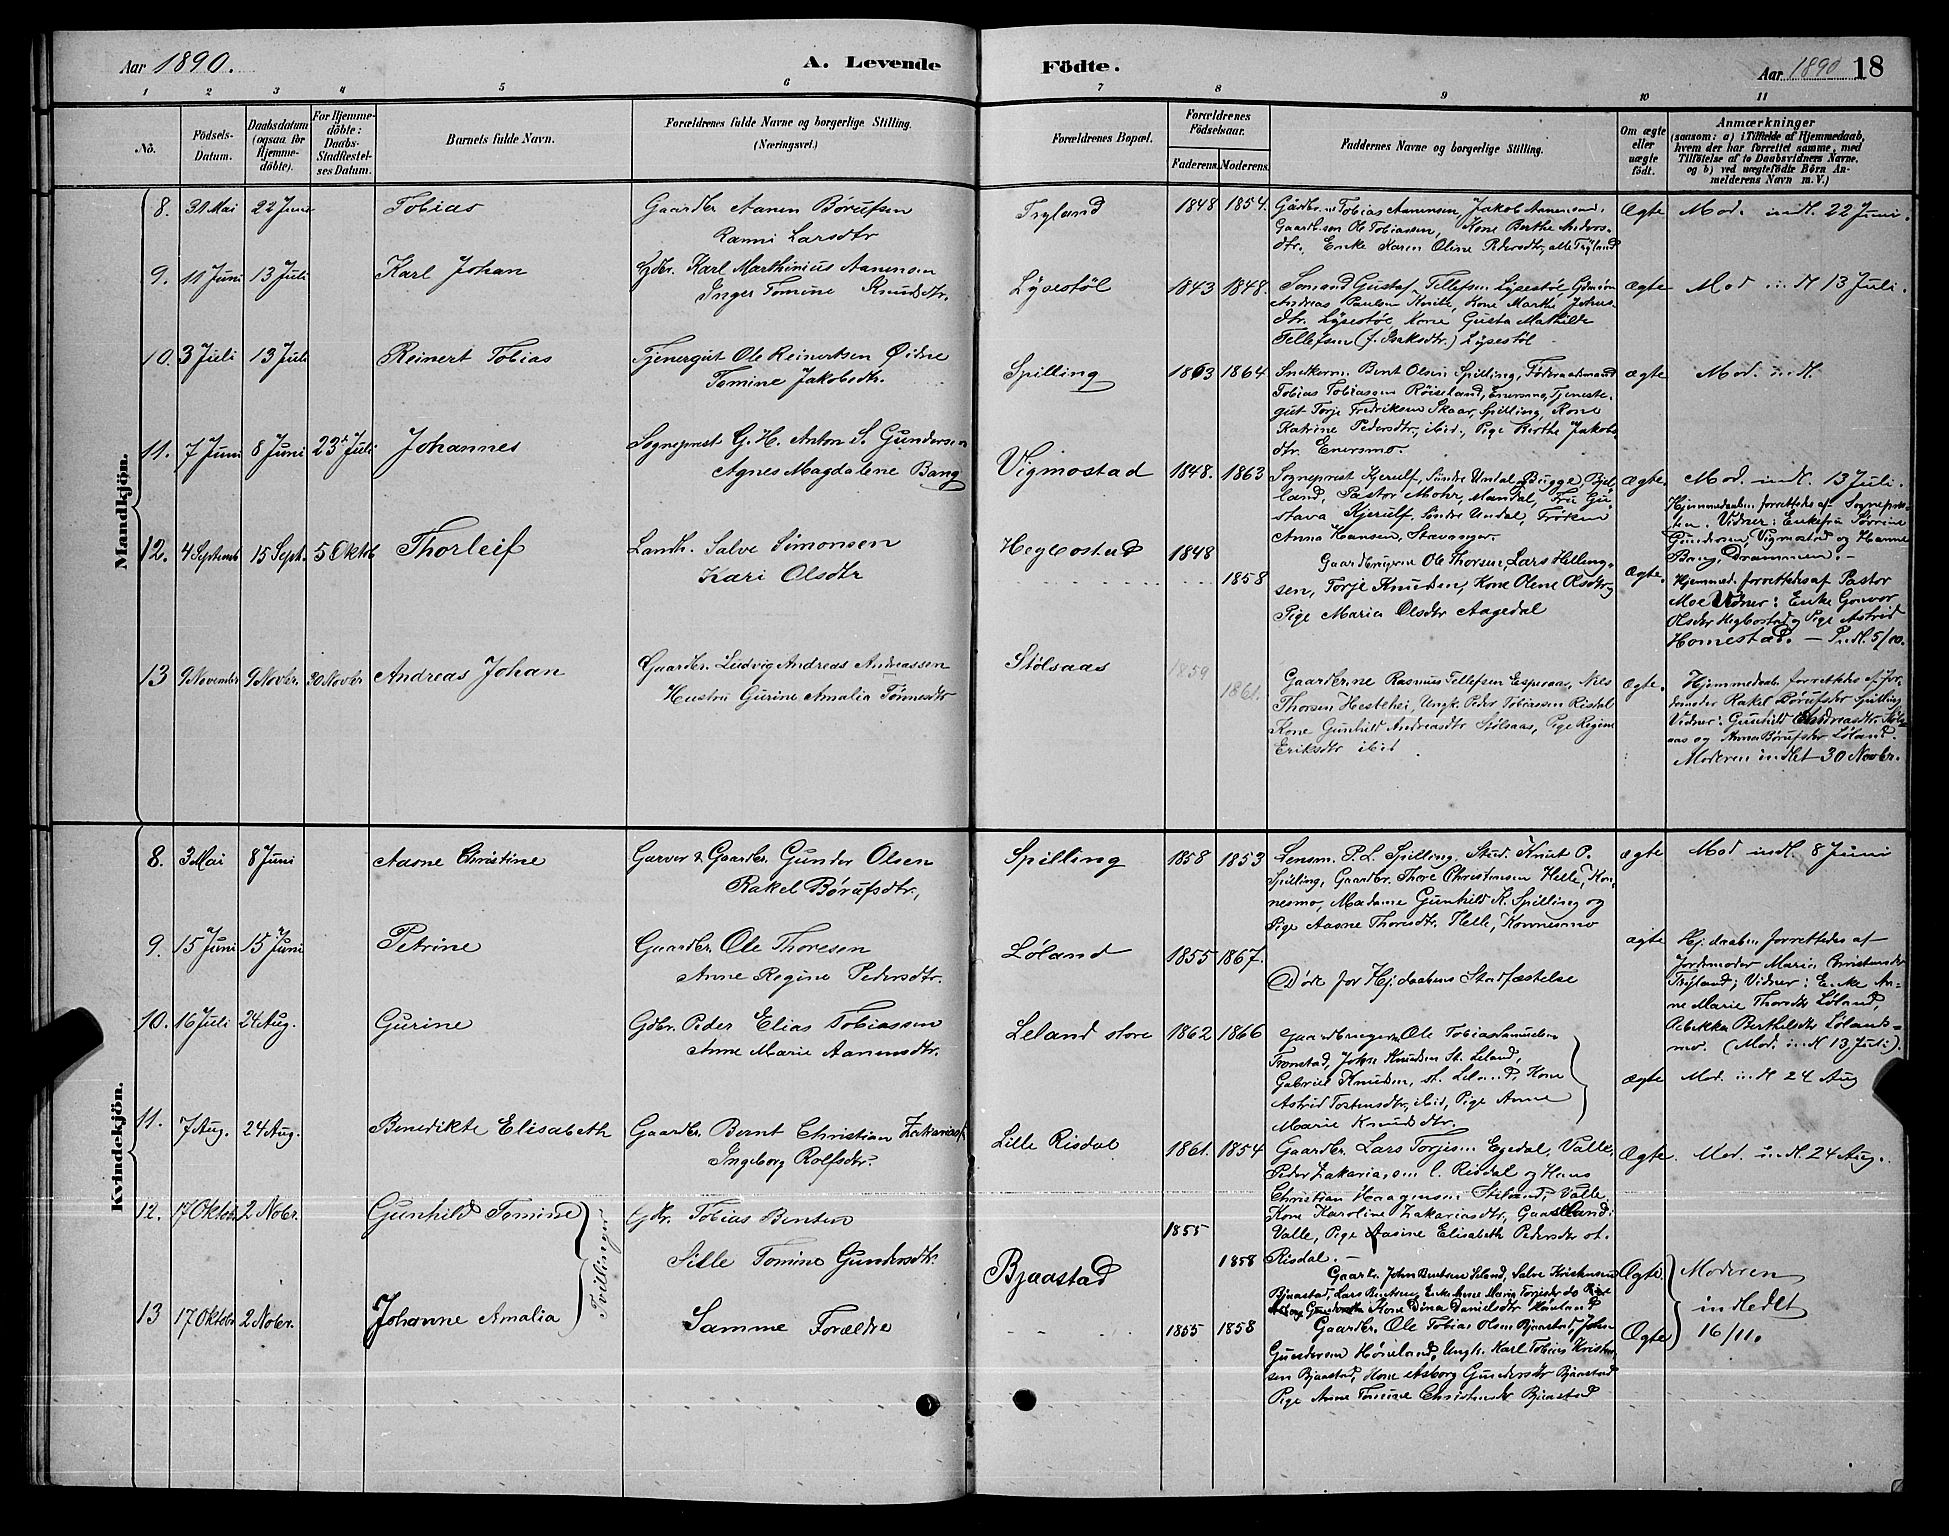 Aar 1890.
A. Levende
Födte.
Aar 1890 18
1 2 3 4 5 6 7 8 9 10 11
No.
Födsels-
Datum.
Daabsdatum
(ogsaa for
Hjemme-
döbte).
For Hjemme-
döbte:
Daabs-
Stadfæstel-
ses Datum.
Barnets fulde Navn.
Forældrenes fulde Navne og borgerlige Stilling.
(Næringsvei.)
Forældrenes Bopæl.
Forældrenes
Födselsaar.
Faderens. Moderens.
Faddernes Navne og borgerlige Stilling.
Om ægte
eller
uægte
født.
Anmærkninger
(saasom: a) i Tilfælde af Hjemmedaab,
hvem der har forrettet samme, med
Tilföielse af to Daabsvidners Navne,
og b) ved uægtefödte Börn An-
melderens Navn m. V.)
Mandkjön.
8. 31 Mai 22 Juni Tobias
Gaardbr Aanen Börufsen
Ranni Larsdtr
Tryland 1848 1854.
Gaardbr. Tobias Aanensen, Jakob Aanensen,
Gaardbrsøn Ole Tobiassen, Kone Berthe Anders-
dtr, Enke Karen Oline Pedersdtr, alle Tryland
Ægte Mod. indl. 22 Juni.
9. 11 Juni 13 Juli Karl Johan
Gdbr. Karl Marthinius Aanensen
Inger Tomine Knudsdtr.
Lysestöl 1843 1848.
Sömand Gustaf Tellefsen Lysestöl,
Andreas Paulsen Kone Marthe
dtr. Lysestöl Kone Gusta Mathilde
Tellefsen (f. Isaksdtr.) Lysestöl
ægte Mod indl 13 Juli.
10. 3 Juli 13 Juli Reinert Tobias
Tjenergut Ole Reinertsen Øidne
Tomine Jakobsdtr.
Spilling 1863 1864
Snekkerne Bent Olsen Spilling, Föderaadsmand
Tobias Tobiassen Röiseland, Enersmo, Tjeneste-
gut Torje Fredriksen Skaar, Spilling, Kone
Katrine Pedersdtr, ibid., Pige Berthe Jakobs
dtr. Enersmo.
ægte Mod. indl.
11. 7 Juni 8 Juni 23 Juli Johannes
Sogneprest G. H. Anton S. Gundersen
Agnes Magdalene Bang
Vigmostad 1848. 1863
Sogneprest Kjerulf, Söndre Undal, Bugge Bjel-
land, Pastor Mohr, Mandal, Fru Gu-
stava Kjerulf, Söndre Undal, Fröken
Anna Hansen, Stavanger.
Ægte. Mod. indl. 13 Juli.
Hjemmedaaben forrettedes af Sognepres-
ten. Vidner: Enkefru Sörine
Gundersen, Vigmostad og Hanne
Bang, Drammen.
12. 4 Septemb 15 Sept. 5 Oktob Thorleif
Landh. Salve Simonsen
Kari Olsdtr
Hegbostad 1848
1858
Gaardbrugerne Ole Thorsen, Lars Helling-
sen, Torje Knudsen, Kone Olene Olsdtr,
Pige Maria Olsdtr Aagedal
Ægte. Hjemmed. forrettedes af Pastor
Moe Vidner: Enke Gunvor
Olsdtr Hegbostad og Pige Astrid
Homestad. — P. indl. 5/10.
13 9 November 9 Novbr. 30 Novbr Andreas Johan
Gaardbr. Ludvig Andreas Andreassen
Hustru Gurine Amalia Tönnesdtr
Stölsaas 1859
1861.
Gaardbrne Rasmus Tellefsen Esperaas, Nils
Thorsen Hestehei, Ungk. Peder Tobiassen Risdal
Kone Gunhild Andreasdtr Stölsaas, Pige Regine
Eriksdtr ibid.
Ægte. Hjemmedaab. forrettedes af Jor-
demoder Rakel Börufsdtr Spilling
Vidner: Gunhild Andreasdtr Stöls-
aas og Anna Börufsdtr Löland.
Moderen indlet 30 Novbr.
Kvindekjön.
8. 3 Mai 8 Juni Aasne Christine
Garver & Gaardbr. Gunder Olsen
Rakel Börufsdtr,
Spilling 1858 1853
Lensm. P. L. Spilling, Stud. Knut P.
Spilling, Gaardbr. Thore Christensen Helle, Kon-
nesmo, Madame Gunhild K. Spilling og
Pige Aasne Thorsdtr. Helle, Konnesmo
ægte Mod indl. 8 Juni
9. 15 Juni 15 Juni Petrine
Gaardbr. Ole Thoresen
Anne Regine Pedersdtr.
Löland 1855 1867.
Döde for Hj. daabens Stadfæstelse
ægte Hj. daaben forrettedes af
Jordemoder Maria Christensdtr
Tryland; Vidner: Enke An-
ne Marie Thorsdtr Löland,
Rebekka Berthilsdtr Lölands-
mo. (Mod. indl 13 Juli).
10. 16 Juli 24 Aug. Gurine
Gdbr. Peder Elias Tobiassen
Anne Marie Aanensdtr.
Leland store 1862 1866
Gaardbrugerne Ole Tobias Knudsen
Tronstad, John Knudsen St. Leland,
Gabriel Knudsen, st. Leland, Kone
Astrid Tostensdtr, ibid, Pige Anne
Marie Knudsdtr.
ægte Mod. indl 24 Aug
11. 7 Aug. 24 Aug. Benedikte Elisabeth
Gaardbr. Bernt Christian Zakariass.
Ingeborg Rolfsdtr.
Lille Risdal 1861. 1854
Gaardbr. Lars Torjesen Egedal, Valle,
Peder Zakariassen l. Risdal og Hans
Christian Haagensen Stiland, Valle,
Kone Karoline Zakariasdtr, Gaaseland,
Valle, Pige Aasine Elisabeth Pedersdtr st.
Risdal.
Ægte. Mod. indl. 24 Aug.
12. 17 Oktobr 2 Nobr. Gunhild Tomine
Tvillinger
Gbr. Tobias Bentsen
Sille Tomine Gundersdtr.
Bjaastad 1855
1858
Gaardbr. John Bentsen Leland, Salve Kristensen
Bjaastad, Lars Bentsen, Enke Anne Maria Torjesdtr
Gundersdtr Kone Dina Danielsdtr Höiland
Ægte Moderen
indledet
16/11.
13 17 Oktobr 2 Nobr. Johanne Amalia
Samme Forældre
1855 1858
Gaardbr. Ole Tobias Olsen Bjaastad, John
Gundersen Höiland, Ungk. Karl Tobias Kristen-
sen Bjaastad, Kone Asborg Gundersdtr Bjaastad
Pige Anne Tomine Christensdtr Bjaastad
Ægte